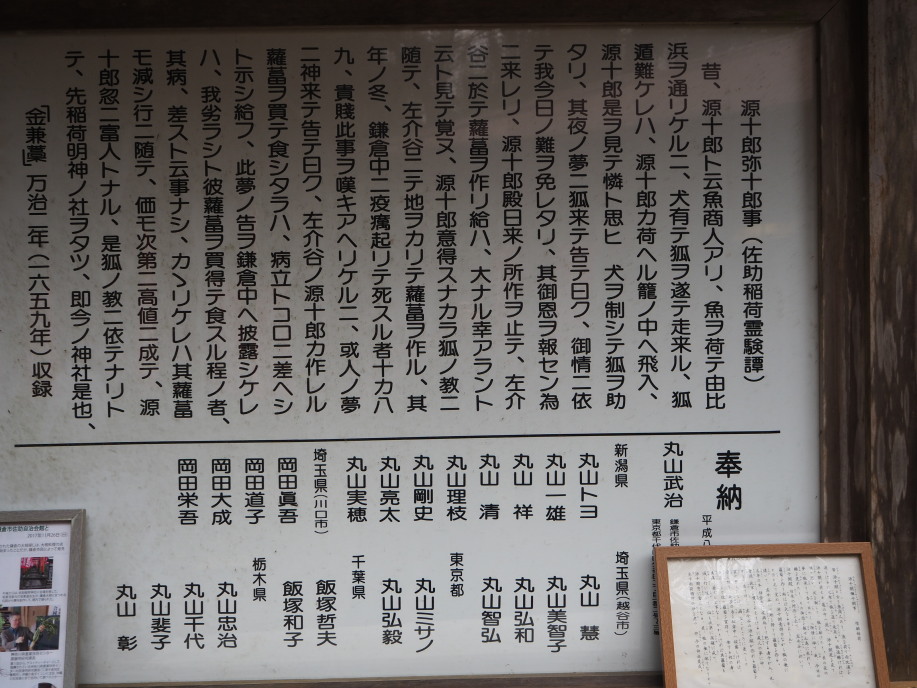 源十郎弥十郎事(佐助稲荷霊験譚)
昔、源十郎ト云魚商人アリ、魚ヲ荷テ由比
浜ヲ通リケルニ、犬有テ狐ヲ遂テ走来ル、狐
遁難ケレハ、源十郎カ荷ヘル籠ノ中ヘ飛入、
源十郎是ヲ見テ憐ト思ヒ 犬ヲ制シテ狐ヲ助
タリ、其夜ノ夢ニ狐来テ告テ曰ク、御情ニ依
テ我今日ノ難ヲ免レタリ、其御恩ヲ報セン為
ニ来レリ、源十郎殿日来ノ所作ヲ止テ、左介
谷ニ於テ蘿蔔ヲ作リ給ハ、大ナル幸アラント
云ト見テ覚ヌ、源十郎意得スナカラ狐ノ教ニ
随テ、左介谷ニテ地ヲカリテ蘿蔔ヲ作ル、其
年ノ冬、鎌倉中ニ疫癘起リテ死スル者十カ八
九、貴賤此事ヲ嘆キアヘリケルニ、或人ノ夢
ニ神来テ告テ曰ク、左介谷ノ源十郎カ作レル
蘿蔔ヲ買テ食シタラハ、病立トコロニ差ヘシ
ト示シ給フ、此夢ノ告ヲ鎌倉中ヘ披露シケレ
ハ、我劣ラシト彼蘿蔔ヲ買得テ食スル程ノ者、
其病、差スト云事ナシ、カヽリケレハ其蘿蔔
モ減シ行ニ随テ、価モ次第ニ高値ニ成テ、源
十郎忽ニ富人トナル、是狐ノ教ニ依テナリト
テ、先稲荷明神ノ社ヲタツ、即今ノ神社是也、
「金兼藁」万治二年(一六五九年)収録
奉納
平成八
丸山武治
鎌倉市佐助
新潟県
丸山トヨ
丸山一雄
丸山 祥
丸山 清
丸山理枝
丸山剛史
丸山亮太
丸山実穂
埼玉県(川口市)
岡田眞吾
岡田道子
岡田大成
岡田栄吾
埼玉県(越谷市)
丸山 慧
丸山美智子
丸山弘和
丸山智弘
東京都
丸山ミサノ
丸山弘毅
千葉県
飯塚哲夫
飯塚和子
栃木県
丸山忠治
丸山千代
丸山斐子
丸山 彰